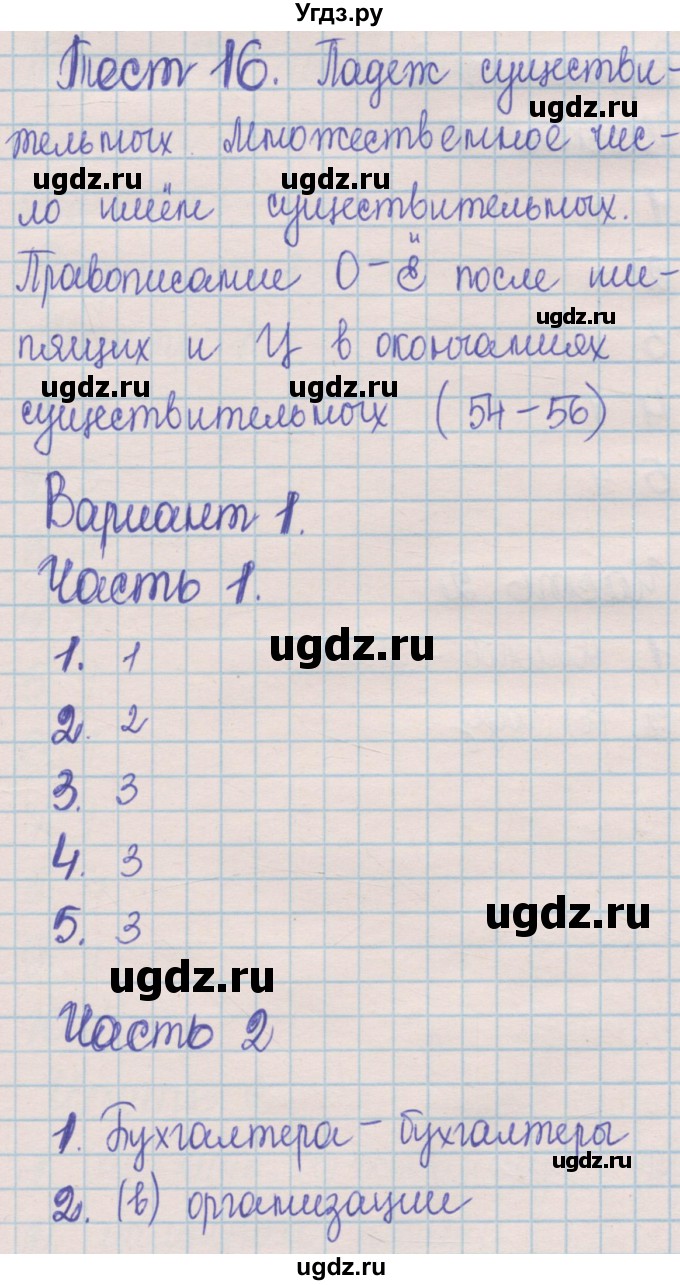 Угдз.ру
Тест 16. Падеж существи-
ugdz.ru
тельных. Множественное чис-
ugdz.ru ugdz.ru
ло имён существительных.
Правописание О-Ё и после ши-
ugdz.ru
пящих и Ц в окончаниях
ugdz.ru ugdz.ru
существительных (54-56)
Вариант 1.
Часть 1.
1. 1
ugdz.ru
2. 2
3. 3
4. 3
ugdz.ru
5. 3
ugdz.ru
Часть 2
1. Бухгалтера - бухгалтеры
ugdz.ru
2. (в) организации
ugdz.ru